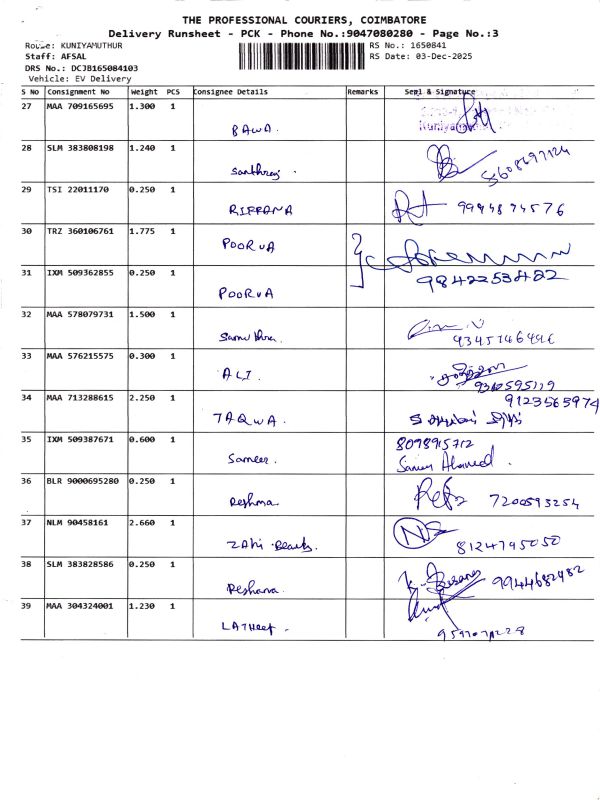 THE PROFESSIONAL COURIERS, COIMBATORE
Delivery Runsheet - PCK - Phone No.:9047080280 - Page No.:3
Route: KUNIYAMUTHUR
RS No.: 1650841
Staff: AFSAL
RS Date: 03-Dec-2025
DRS No.: DCJB165084103
Vehicle: EV Delivery
S No Consignment No Weight PCS Consignee Details Remarks Seal & Signature
27 MAA 709165695 1.300 1
BAWA.
28 SLM 383808198 1.240 1
Santhrej . 8608697124
29 TSI 22011170 0.250 1
RIFFANA 9994894576
30 TRZ 360106761 1.775 1
POORVA
31 IXM 509362855 0.250 1
POORVA 9842253422
32 MAA 578079731 1.500 1
33 MAA 576215575 0.300 1
ALI.
34 MAA 713288615 2.250 1 9123565974
TAQWA.
35 IXM 509387671 0.600 1 8098915712
Sameer.
36 BLR 9000695280 0.250 1
Reshma. 7200593254
37 NLM 90458161 2.660 1
NS
8124795050
38 SLM 383828586 0.250 1
Reshana. 9944682482
39 MAA 304324001 1.230 1
LATHeef.